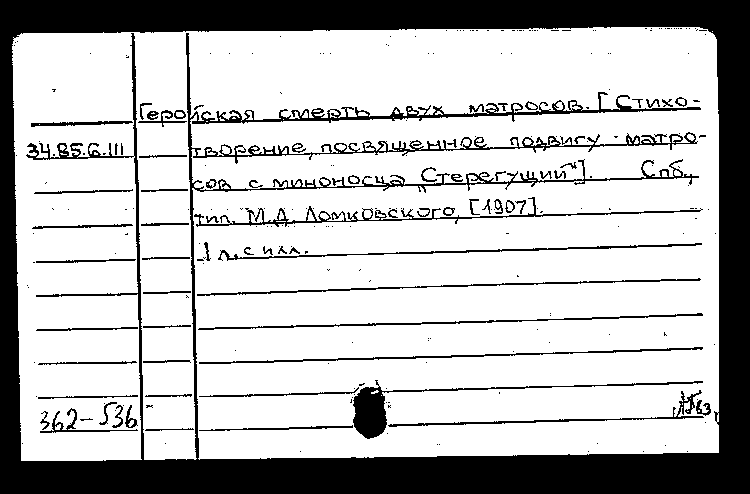 Геройская смерть двух матросов. [Стихо-
34.85.6.III творение, посвященное подвигу матро-
сов с миноносца „Стерегущий"]. Спб.,
тип. М.Д. Ломковского, [1907].
1 л. с илл.
362-536